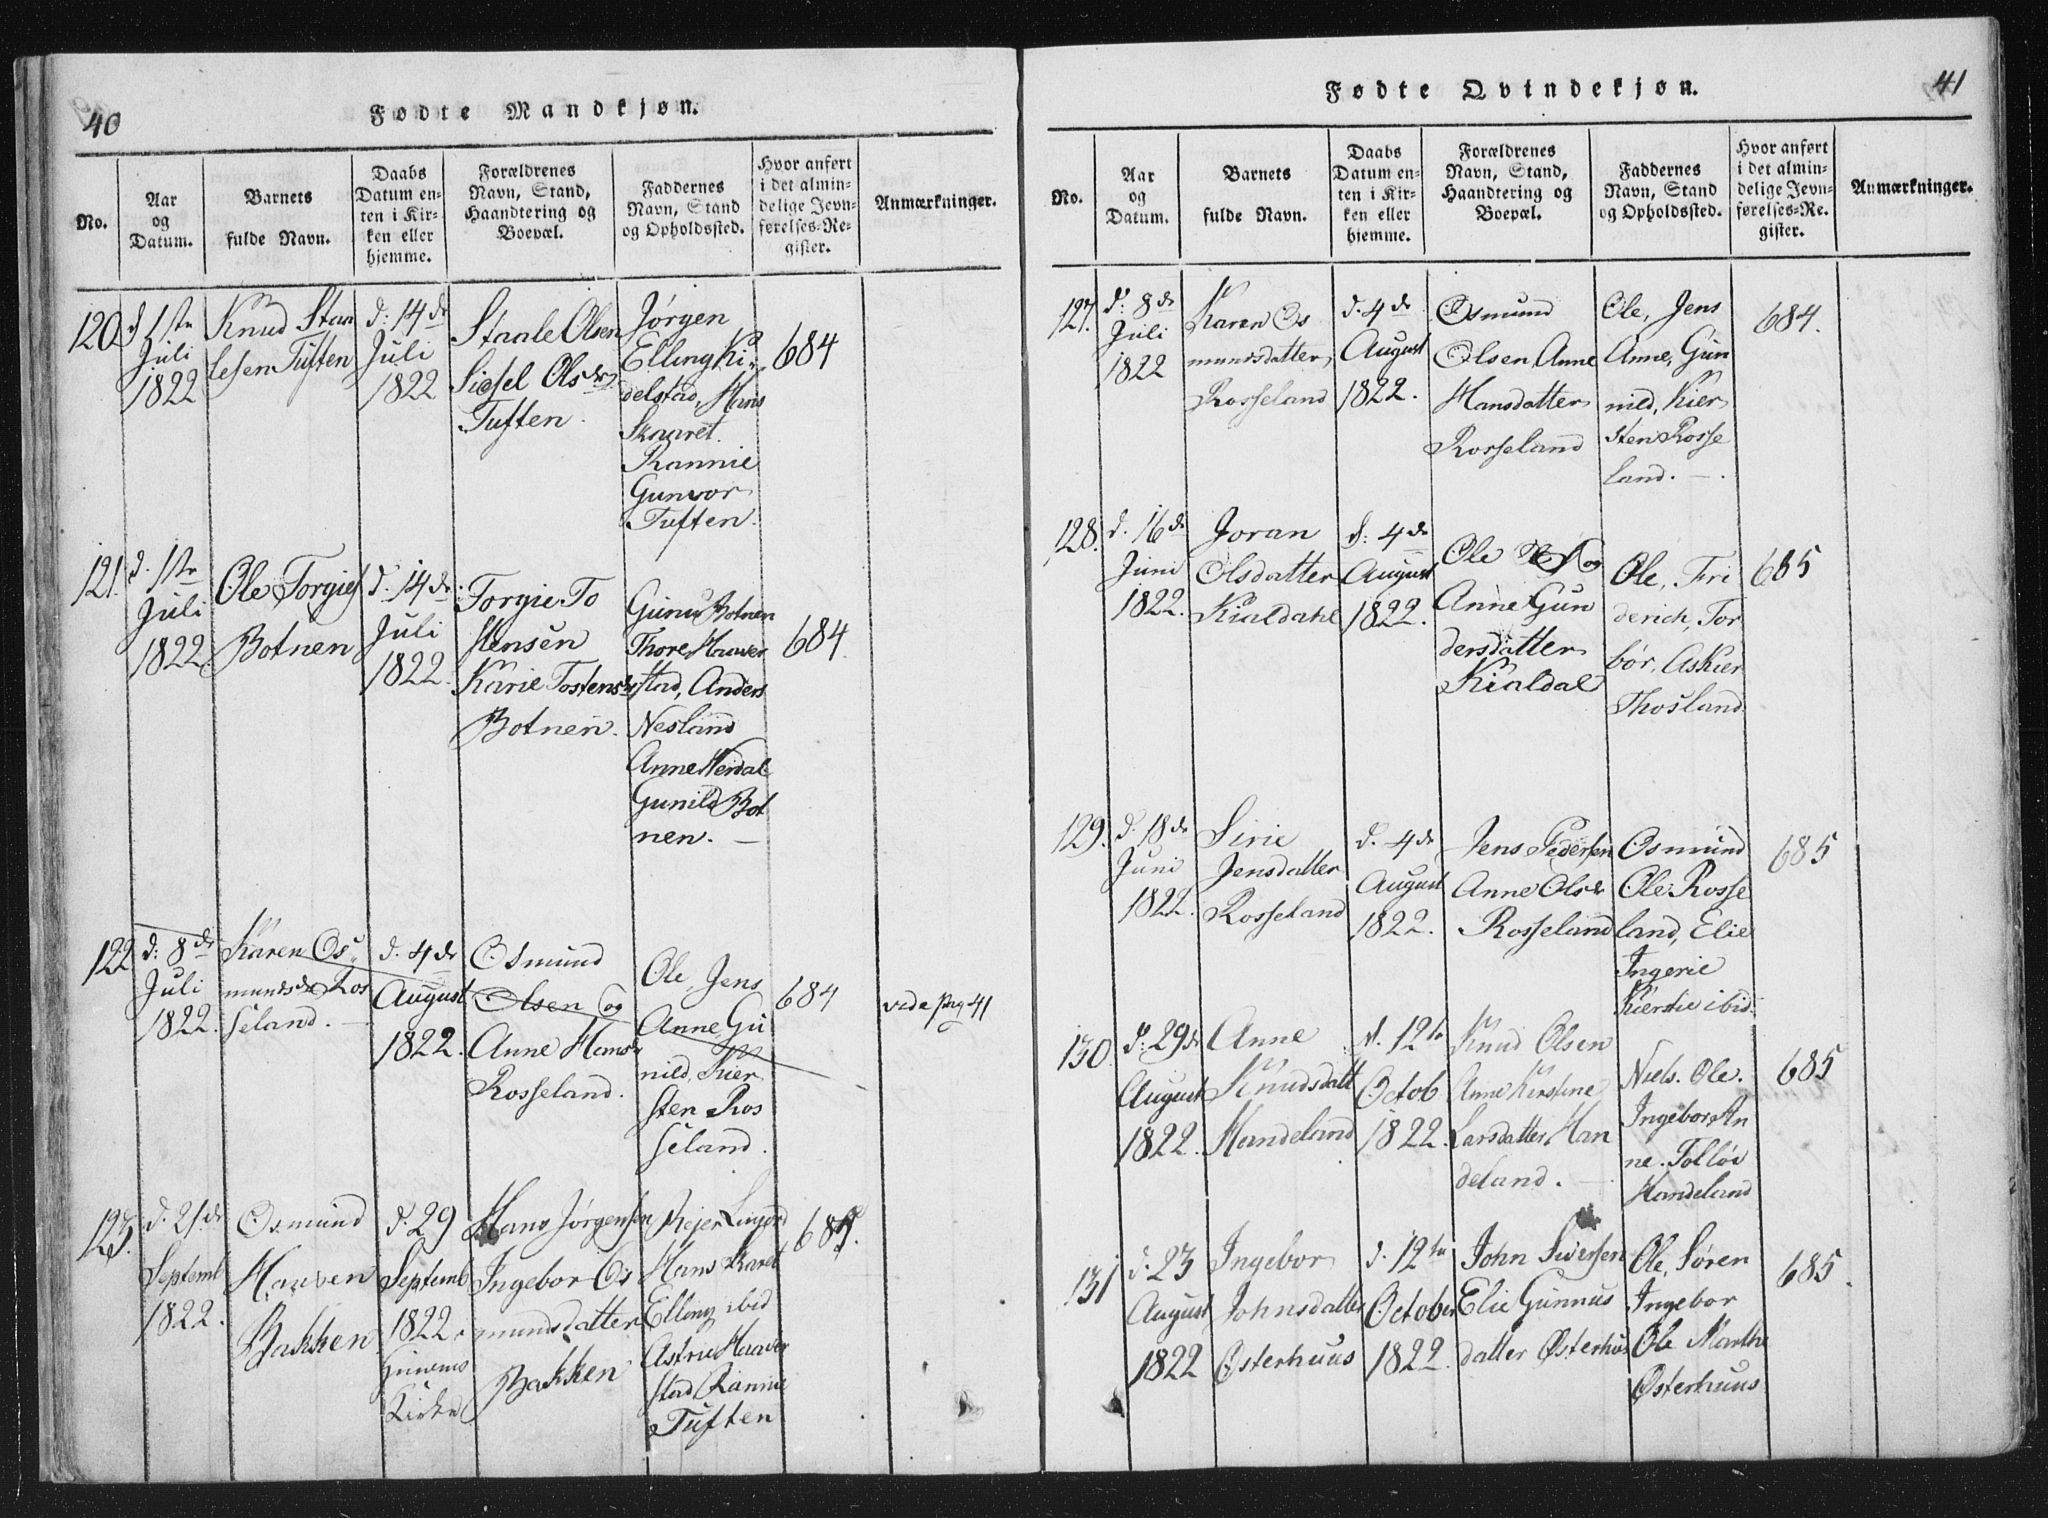 40
Fødte Mandkjøn.
No.
Aar
og
Datum.
Barnets
fulde Navn.
Daabs
Datum en-
ten i Kir-
ken eller
hjemme.
Forældrenes
Navn, Stand,
Haandtering og
Boepæl.
Faddernes
Navn, Stand
og Opholdssted.
Hvor anført
i det almin-
delige Jevn-
førelses-Re-
gister.
Anmærkninger.
120
d 1ste
Juli
1822
Knud Staa
lesen Tuften
d: 14de
Juli
1822
Staale Olsen
Sidsel Olsdr
Tuften.
Jørgen
Elling Ki-
delstad, Hans
Skaaret.
Rannie
Gunvor
Tuften.
684
121.
d. 1ste
Juli
1822
Ole Torgies
Botnen
d. 14de
Juli
1822.
Torgie To
stensen
Karie Tostensdr
Botnen.
Gunu Botnen
Thore Haaver
stad, Anders
Nesland
Anne Heidal
Gunild Bot
nen. —
684
122
d: 8de
Juli
1822.
Karen Os-
mundsdr Ros
seland. —
d. 4de
August
1822.
Osmund
Olsen og
Anne Hansdr
Rosseland.
Ole, Jens
Anne, Gu
nild, Kier
sten Ros
seland.
684
vide pag 41
123.
d. 21de
Septemb
1822.
Osmund
Hansen
Bakken
d. 29
Septemb
1822.
Kirke
Hans Jørgensen
Ingebor Os
mundsdatter
Bakken
Hans Skaret
Elling ibid
Astrie Haaver
stad Rannie
Tuften
685.
41
Fødte Qvindekjøn.
No.
Aar
og
Datum.
Barnets
fulde Navn.
Daabs
Datum en-
ten i Kir-
ken eller
hjemme.
Forældrenes
Navn, Stand,
Haandtering og
Boepæl.
Faddernes
Navn, Stand
og Opholdssted.
Hvor anført
i det almin-
delige Jevn-
førelses-Re-
gister.
Anmærkninger.
127.
d. 8de
Juli
1822
Karen Os
mundsdatter
Rosseland
d. 4de
August
1822.
Osmund
Olsen Anne
Hansdatter
Rosseland
Ole, Jens
Anne, Gun
nild, Kier
sten Rosse
land. —.
684.
128.
d. 16de
Juni
1822.
Joran
Olsdatter
Kialdahl
d. 4de
August
1822.
Ole og
Anne Gun
dersdatter
Kialdal
Ole, Fri
derich, Tor
bør, Askier
Thosland.
685
129.
d. 18de
Juni
1822.
Sirie
Jensdatter
Rosseland
d. 4de
August
1822.
Jens Pedersen
Anne Olsdr
Rosseland
Osmund
Ole Rosse
land, Elie
Ingerie
Kierstie ibid.
685
130
d. 29de
August
1822.
Anne
Knudsdatt
Handeland
d. 12te
Octob
1822.
Knud Olsen
Anne Kirstine
Larsdatter Han
deland. —
Niels. Ole.
Ingebor, An
ne. Tolløv
Handeland
685
131
d. 23
August
1822
Ingebor
Johnsdatter
Osterhuus
d. 12te
October
1822.
John Siversen
Elie Gunnus
datter Østerhus
Ole, Søren
Ingebor
Ole Marthe
Østerhuus
685.